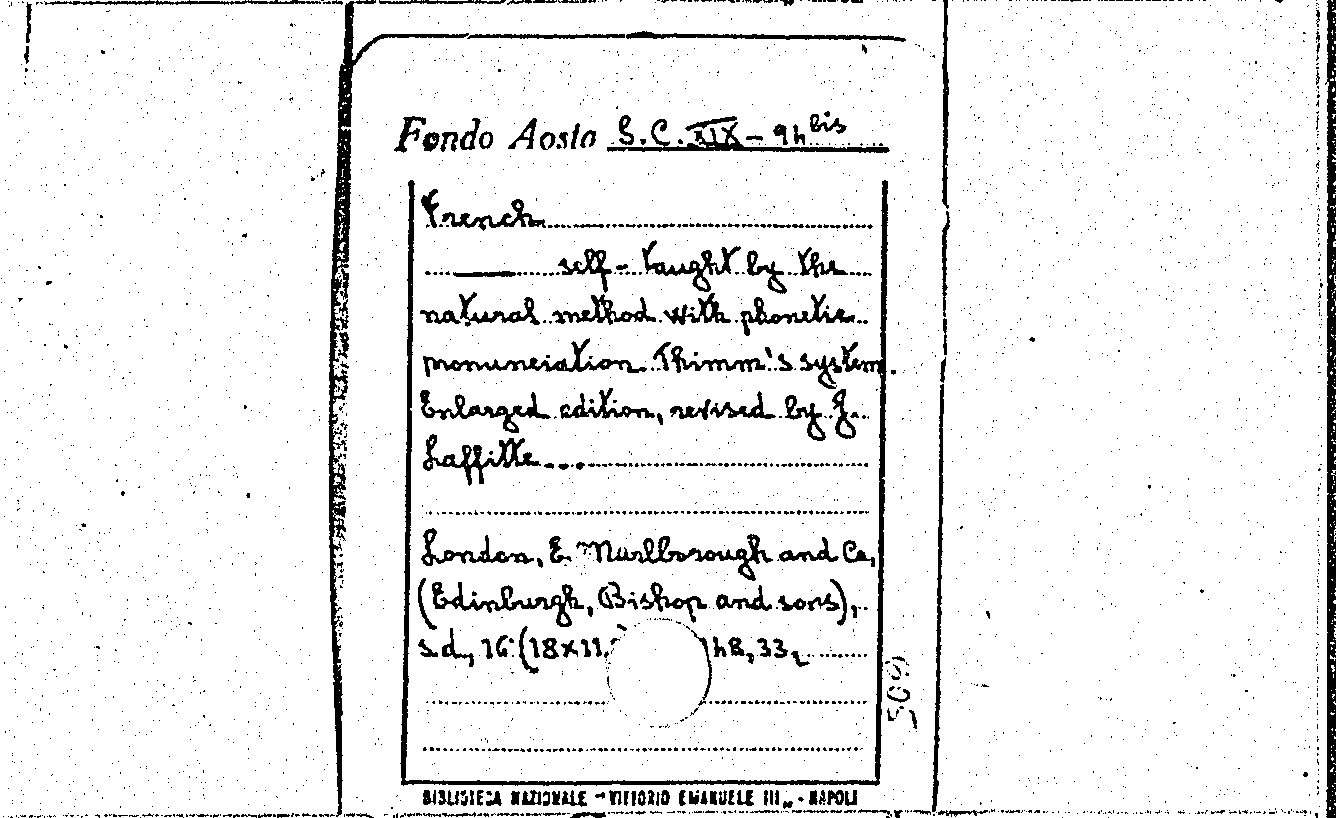 Fondo Aosta S.C. XIX - 94 bis
French
——— self-taught by the
natural method with phonetic
pronunciation. Thimm's system.
Enlarged edition, revised by J.
Laffitte...
London, E. Marlborough and Co,
(Edinburgh, Bishop and sons),
s.d., 16° (18x11, 148, 33,
BIBLIOTECA NAZIONALE "VITTORIO EMANUELE III" - NAPOLI